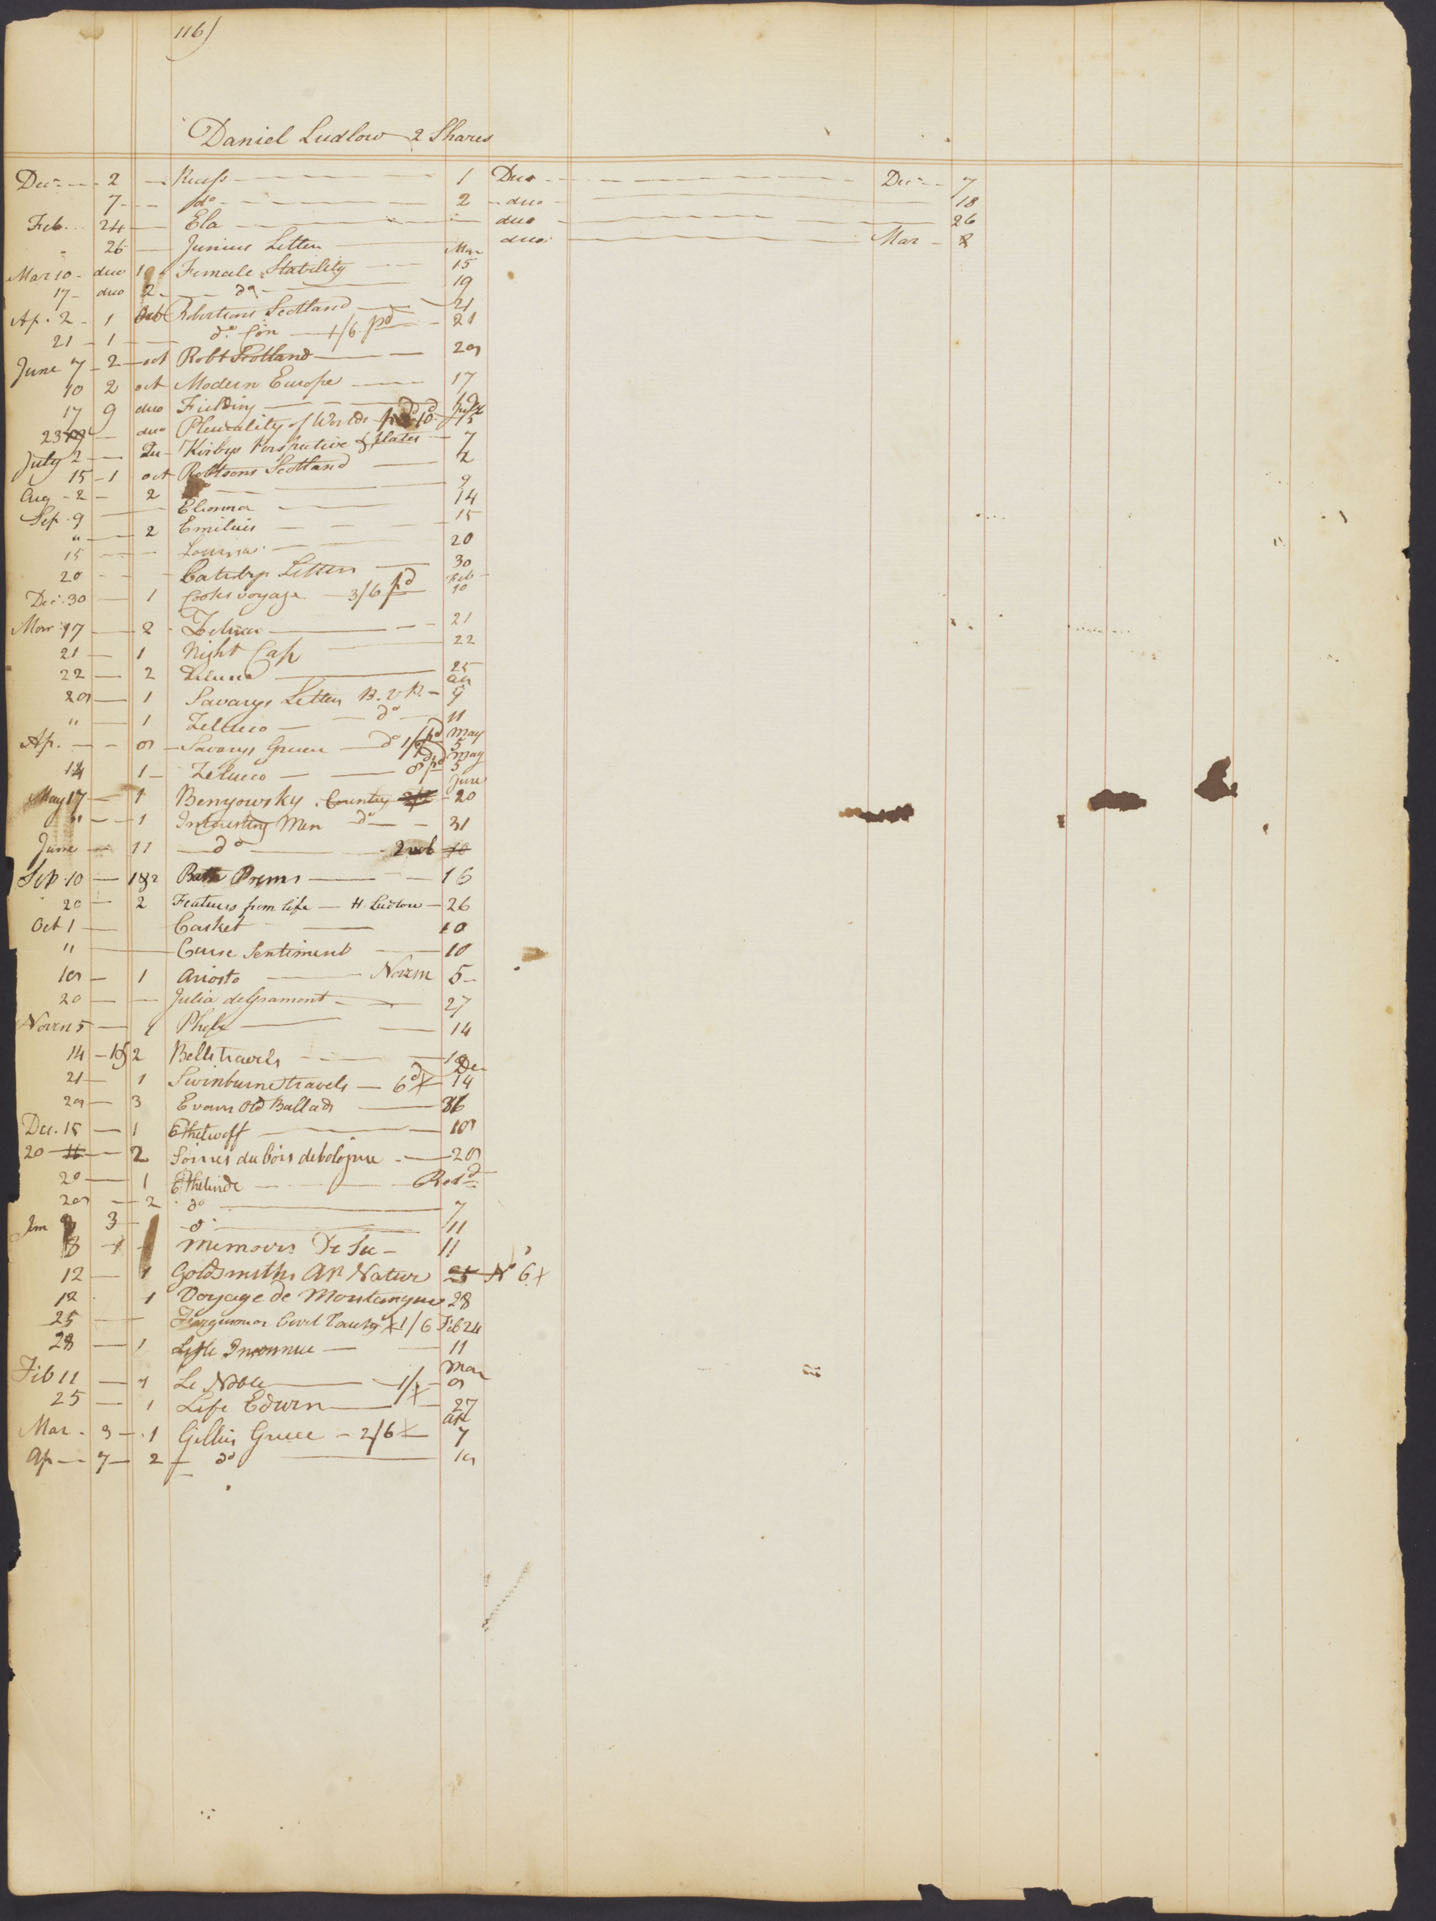 116)
Daniel Ludlow 2 Shares
Decr 2 Recess 1 Duo Decr 7
7 do 2 duo 18
Feb. 24 Ela duo 26
26 Junius Letters duo Mar 8
Mar 10 duo 1 Female Stability Mar 15
17 duo 2 do 19
Ap. 2 1 Oct Robertsons Scotland 21
21 1 do 1/6 pd 21
June 7 2 oct Robt Scotland 29
10 2 oct Modern Europe 17
17 9 duo Fielding
23 duo Plurality of Worlds 15
July 2 Qu Kirbys Perspective & plates 7
15 1 oct Robtsons Scotland 2
Aug 2 2 9
Sep. 9 Eleonora 14
" 2 Emilius 15
15 Louisa 20
20 Catesbys Letters 30
Dec. 30 1 Cooks voyage 3/6 pd Feb 10
Mar 17 2 21
21 1 Night Cap 22
22 2 25
29 1 Savarys Letters Ap 9
" 1 Zeluco do 11
Ap. 9 Savarys Greece do pd May 5
14 1 Zeluco pd May 5
May 17 1 Benyowsky Country June 20
" 1 Interesting Mem do 31
June 11 do 2 vols 10
Sep. 10 1 & 2 Bath Poems 15
20 2 Features from life H. Ludlow 26
Oct 1 Casket 10
" Course Sentiment 10
19 1 Ariosto Novem 5
20 Julia de Gramont 27
Novem 5 1 14
14 1 & 2 Bells travels 19
21 1 Swinburne travels 6d Dec 14
29 3 Evans Old Ballads 16
Dec. 15 1 Ethelwolf 19
20 2 Soirees du bois de bologne 29
20 1 Ethelinde Retd
29 2 do 7
Jan 3 do 11
8 1 Memoirs De 11
12 1 Goldsmiths An Nature 25 No 6
12 1 Voyage de Montaigne 28
25 Ferguson on Civil 1/6 Feb 24
28 1 Inconnue 11
Feb 11 1 Le Noble 1/ Mar 9
25 1 Life Edwin 27
Mar. 3 1 Gillies Greece 2/6 Ap 7
Ap 7 2 do 19